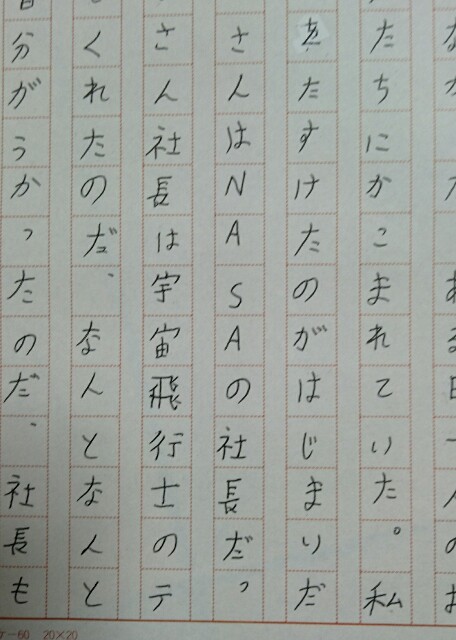 たちにかこまれていた。私
をたすけたのがはじまりだ
さんはNASAの社長だっ
さん社長は宇宙飛行士のテ
くれたのだ、なんとなんと
分がうかったのだ、社長も
ケ-60 20×20